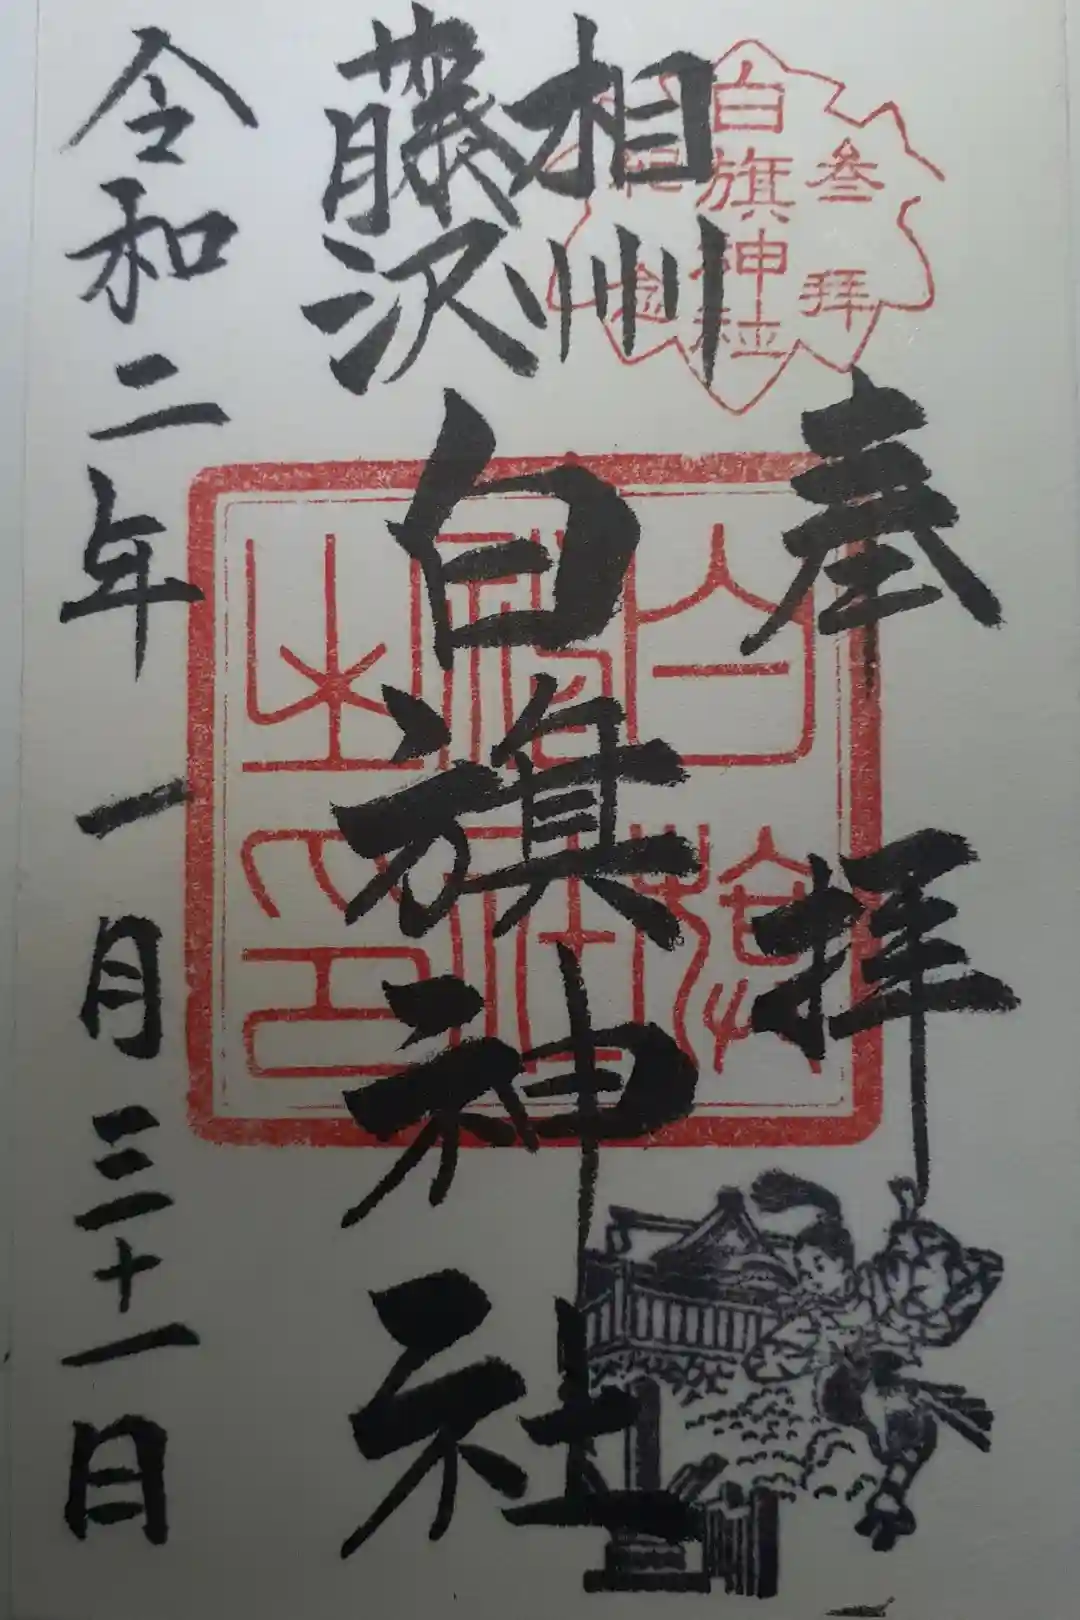 奉拝
相州
藤沢
白旗神社
令和二年一月三十一日
参拝
白旗神社
記念
白旗
神社
之印